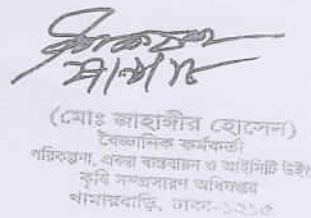 (মোঃ জাহাঙ্গীর হোসেন)
বৈজ্ঞানিক কর্মকর্তা
পরিকল্পনা, প্রকল্প বাস্তবায়ন ও আইসিটি উইং
কৃষি সম্প্রসারণ অধিদপ্তর
খামারবাড়ি, ঢাকা-১২১৫